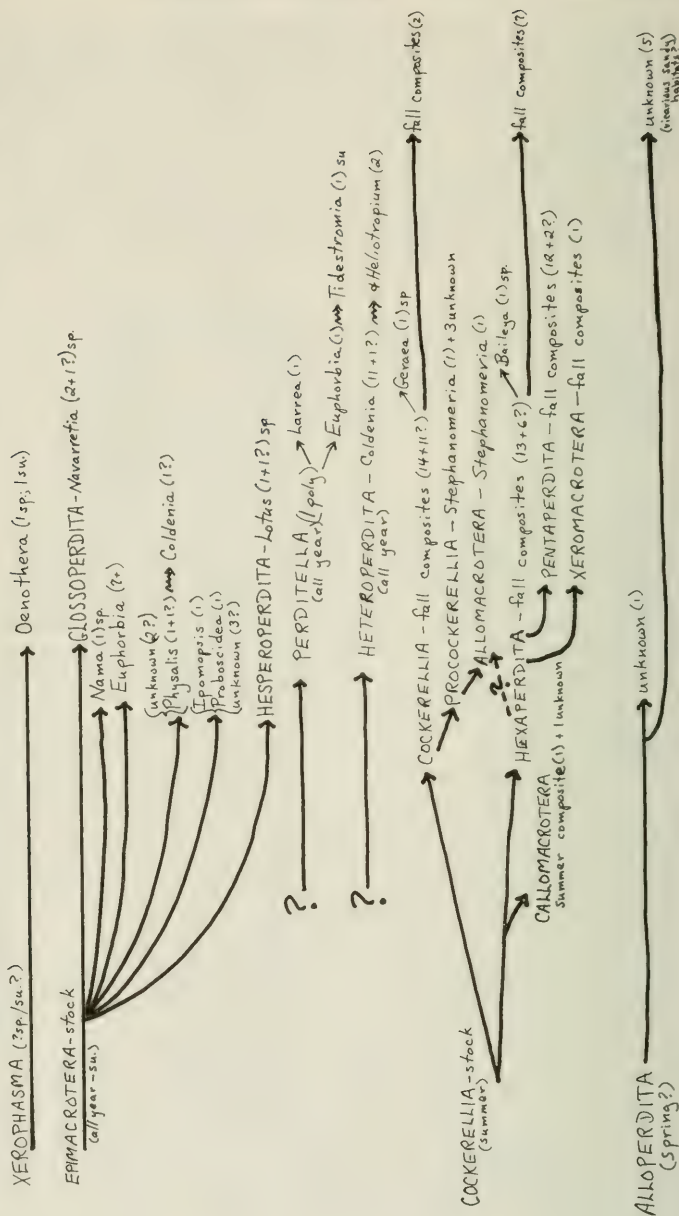 XEROPHASMA (?sp./su.?)
Oenothera (1sp; 1su.)
EPIMACROTERA-stock
(all year-su.)
GLOSSOPERDITA-Navarretia (2+1?)sp.
Nama (1)sp.
Euphorbia (?+)
unknown (2?)
Physalis (1+1?) Coldenia (1?)
Ipomopsis (1)
Proboscidea (1)
unknown (3?)
HESPEROPERDITA-Lotus (1+1?) sp
? PERDITELLA (1 poly) Larrea (1)
(all year) Euphorbia (1) Tidestromia (1) su
? HETEROPERDITA-Coldenia (11+1?) Heliotropium (2)
(all year)
COCKERELLIA-stock
(summer)
COCKERELLIA - fall composites (14+11?) Geraea (1) sp
fall composites (2)
PROCOCKERELLIA-Stephanomeria (1) + 3 unknown
ALLOMACROTERA - Stephanomeria (1)
?
HEXAPERDITA - fall composites (13+6?) Baileya (1) sp.
fall composites (?)
CALLOMACROTERA
summer composite (1) + 1 unknown
PENTAPERDITA - fall composites (12+2?)
XEROMACROTERA - fall composites (1)
ALLOPERDITA
(spring?)
unknown (1)
unknown (5)
(vicarious sandy
habitats?)